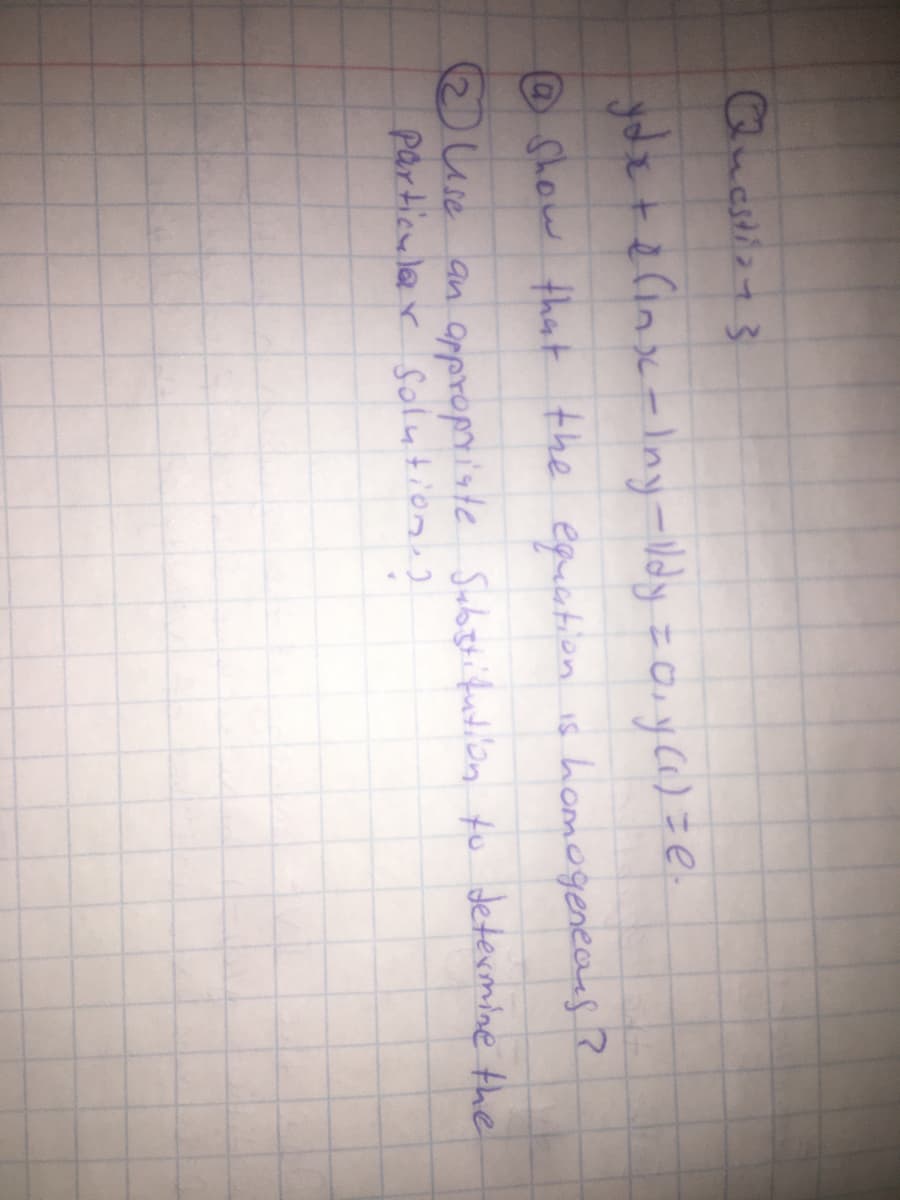 Question 3
ydx + x(lnx - lny - 1)dy = 0, y(1) = e.
(a) Show that the equation is homogeneous?
(2) Use an appropriate Substitution to determine the
particular Solution.?